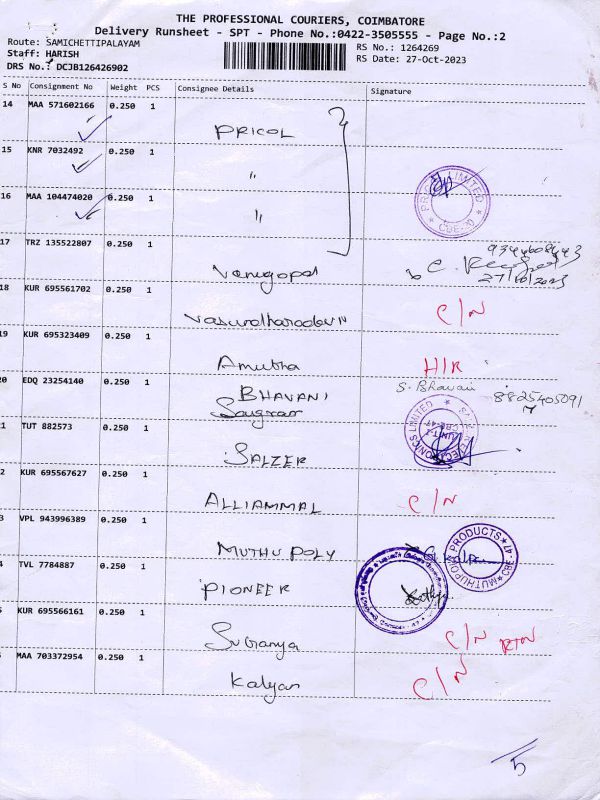 THE PROFESSIONAL COURIERS, COIMBATORE
Delivery Runsheet - SPT - Phone No.:0422-3505555 - Page No.:2
Route: SAMICHETTIPALAYAM
Staff: HARISH
DRS No.: DCJB126426902
RS No.: 1264269
RS Date: 27-Oct-2023
S No Consignment No Weight PCS Consignee Details Signature
14 MAA 571602166 0.250 1 PRICOL
15 KNR 7032492 0.250 1 "
16 MAA 104474020 0.250 1 "
PRICOL LIMITED * CBE-20 *
17 TRZ 135522807 0.250 1 Vanugopal
27/10/2023
18 KUR 695561702 0.250 1 Vasundharadevi C/N
19 KUR 695323409 0.250 1 Amutha H/R
20 EDQ 23254140 0.250 1 BHAVANI S. Bhavani 8825405091
1 TUT 882573 0.250 1 SALZER
ELECTRONICS LIMITED UNIT-1 CBE-47
2 KUR 695567627 0.250 1 ALLIAMMAL C/N
3 VPL 943996389 0.250 1 MUTHU POLY
MUTHUPOLY PRODUCTS * CBE 47 *
4 TVL 7784887 0.250 1 PIONEER
5 KUR 695566161 0.250 1 Suganya C/N RTN
MAA 703372954 0.250 1 Kalyan C/N
5